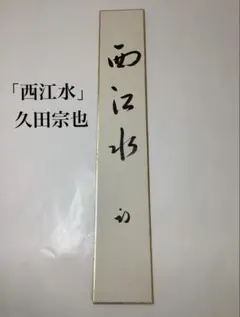 「西江水」
久田宗也
西江水